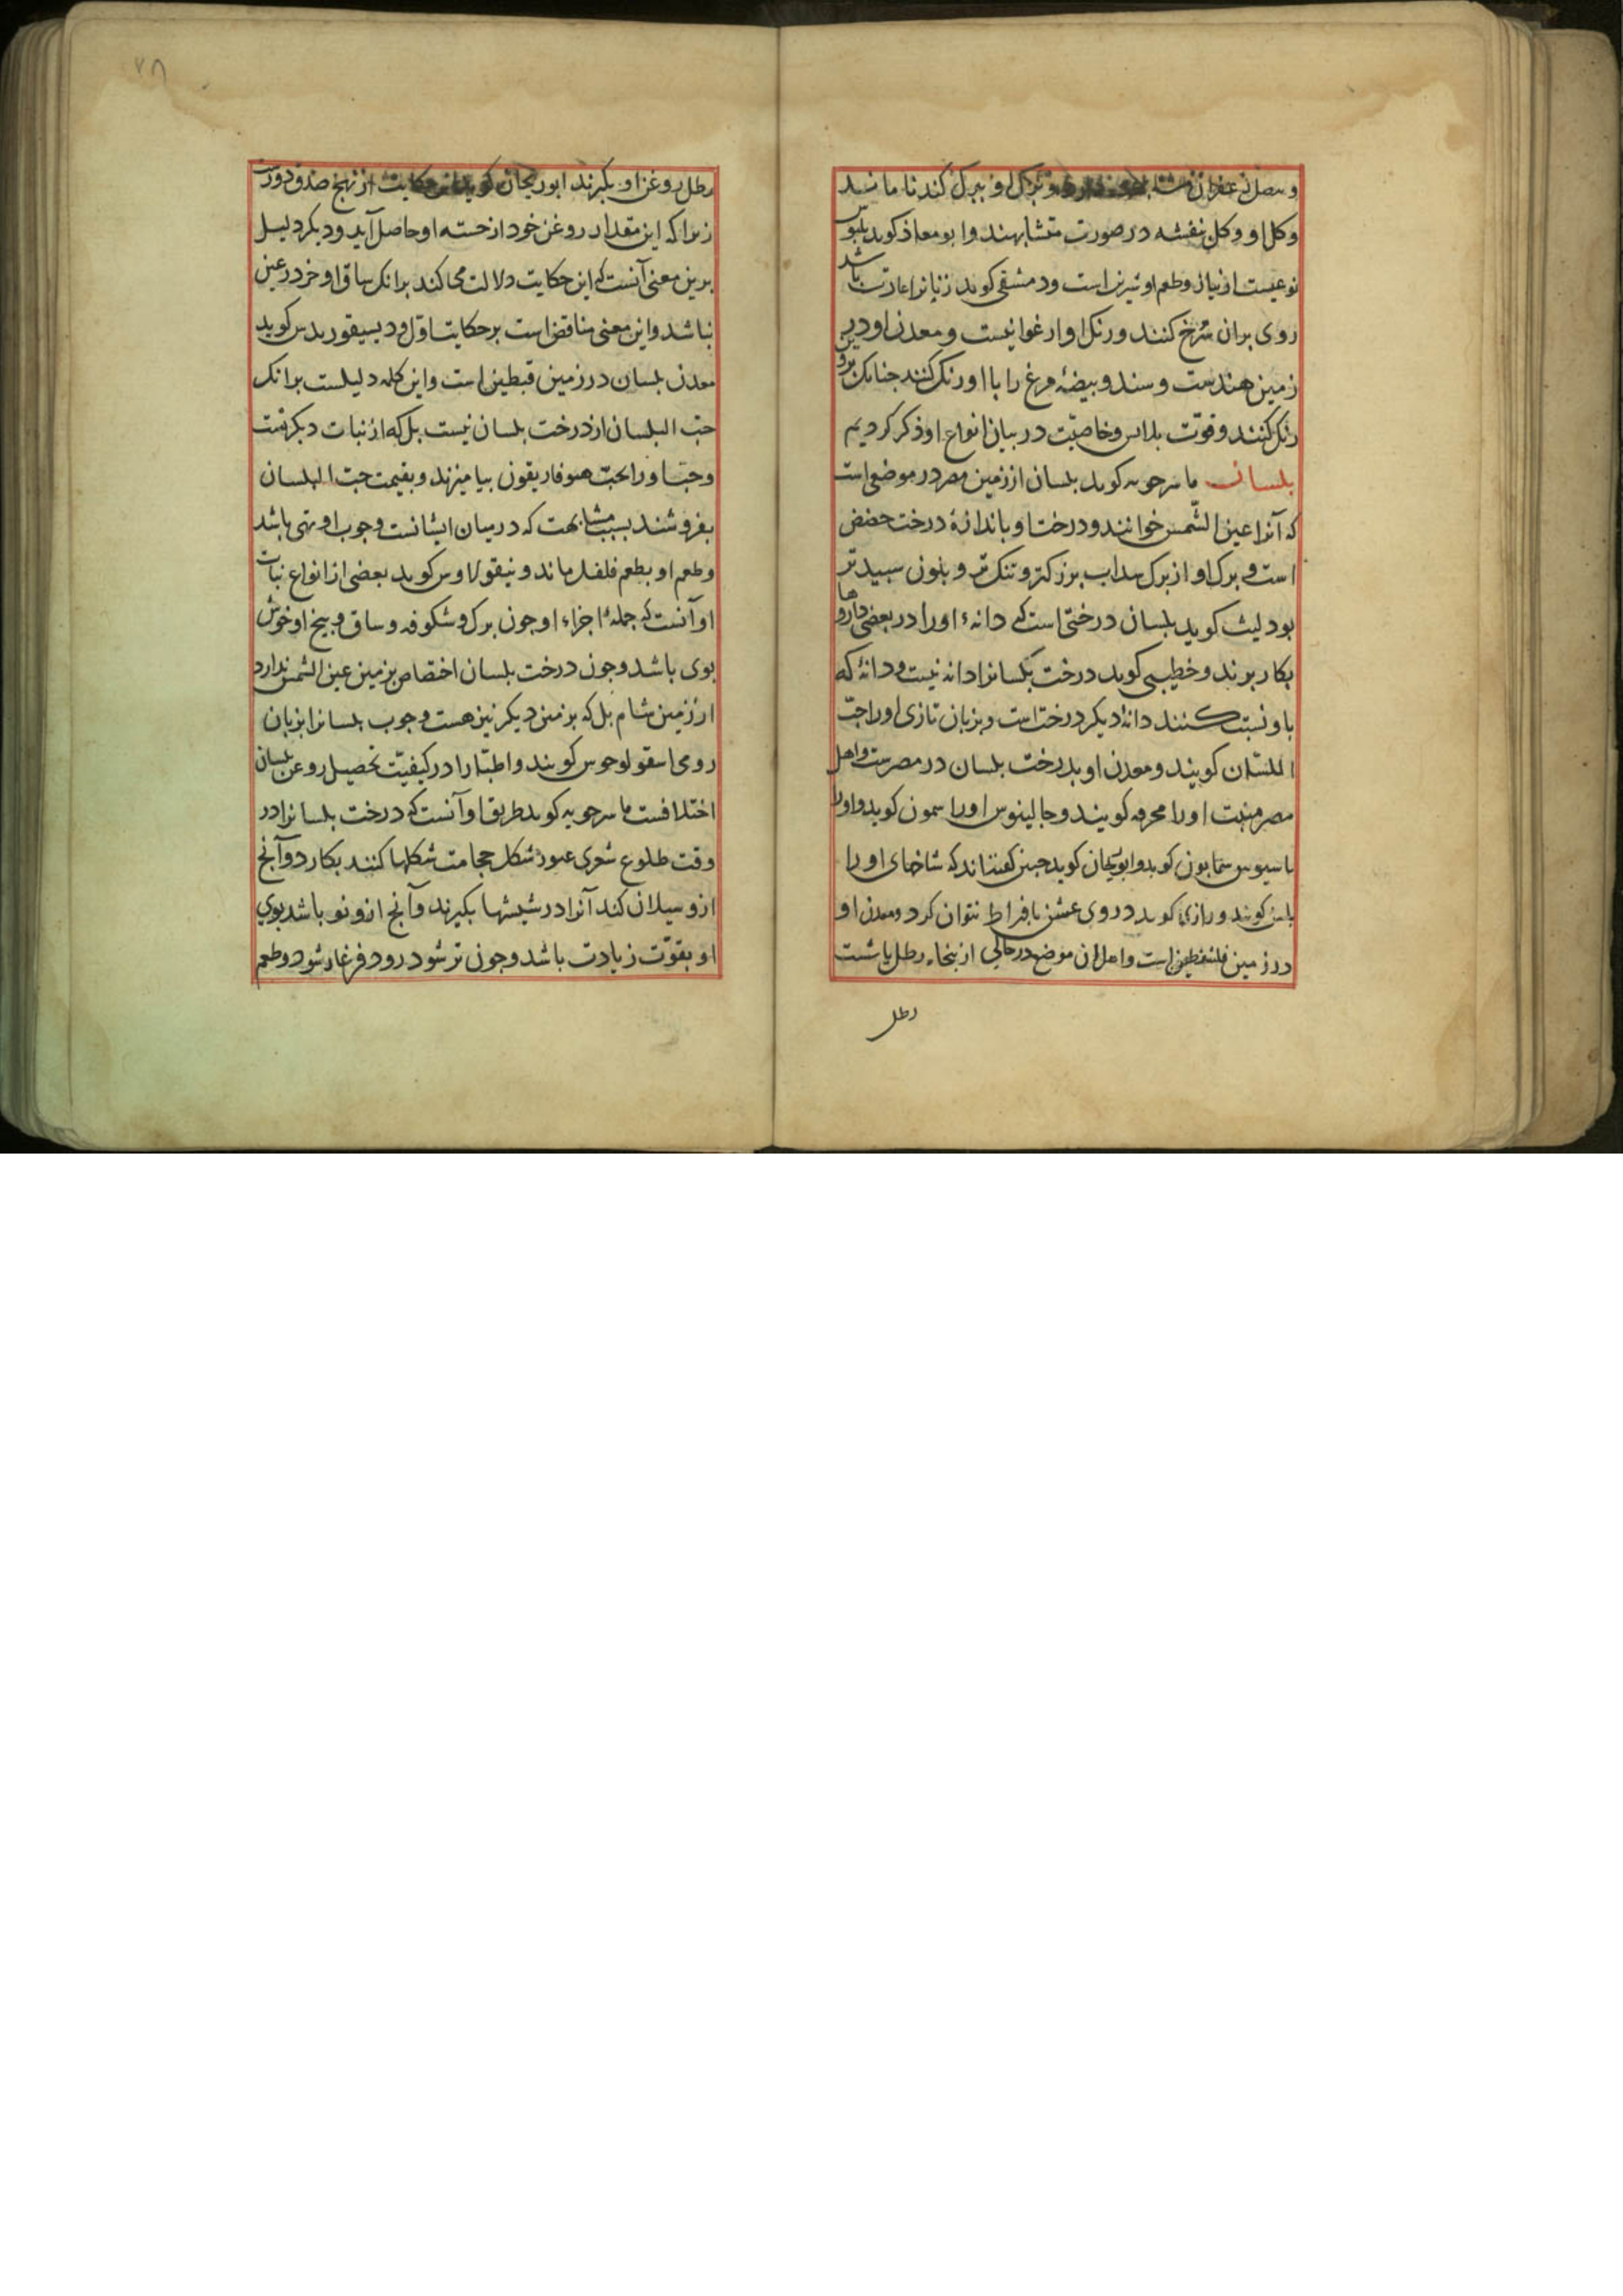 و بصل زعفران مشابه و برگ او ببرک کندنا مانند
وکل او وکل بنفشه در صورت متشابهند وابو معاذ کوید بلبوس
نوعیست از پیاز وطعم او شیرین است ودمشقی کوید زنانرا عادت باشد
روی بران سُرخ کنند ورنک او ارغوانیست و معدن او درین
زمین هندست و سند و بیضهٔ مرغ را با او رنک کنند جنانک برو
رنک کنند وقوّت بلباس وخاصیّت در بیان انواع او ذکر کردیم
بلسان ماسرجویه کوید بلسان از زمین مصر در موضعی است
که آنرا عین الشّمس خوانند ودرخت او باندازهٔ درخت حضض
است و برک او از برک سداب بزرکتر و تنک تر و بلون سپیدتر
بود لیث کوید بلسان درختی است که دانهٔ اورا در بعضی داروها
بکار برند وخطیبی کوید درخت بلسانرا دانه نیست ودانهٔ که
باو نسبت کنند دانهٔ دیکر درخت است و بزبان تازی اورا حبّ
البلسان کویند ومعدن او بدرخت بلسان در مصر است واهل
مصر منبت اورا محرمه کویند وجالینوس اورا سمون کوید واورا
باسیوس سمابون کوید وابوریحان کوید جنین کفته‌اند که شاخهای اورا
بلسن کویند ورازی کوید در وی عشن بافراط نتوان کرد ومعدن او
در زمین فلسطین است واهل ان موضع در حالی از پنجاه رطل یا شست
رطل
۲۸
رطل روغن او بکیرند ابو ریحان کوید این حکایت از نهج صدق دورست
زیرا که این مقدار روغن خود از خسته او حاصل آید ودیکر دلیل
برین معنی آنست که این حکایت دلالت می‌کند برانک ساق او خرد در عین
نباشد واین معنی مناقض است بر حکایت اوّل ودیسیقوریدس کوید
معدن بلسان در زمین قبطین است واین کلمه دلیلست برانک
حبّ البلسان از درخت بلسان نیست بل که از نبات دیکرست
وحبّ اورا بحبّ هیوفاریقون بیامیزند و بقیمت حبّ البلسان
بفروشند بسبب مشابهت که در میان ایشانست وجوب او تهی باشد
وطعم او بطعم فلفل ماند و نیقولاوس کوید بعضی از انواع نبات
او آنست که جملهٔ اجزاء او جون برک وشکوفه و ساق و بیخ او خوش
بوی باشد وجون درخت بلسان اختصاص بزمین عین الشّمس ندارد
از زمین شام بل که بزمین دیکر نیز هست وجوب بلسانرا بزبان
رومی اسقولوحوس کویند واطبّا را در کیفیّت تحصیل روغن بلسان
اختلافست ماسرجویه کوید طریق او آنست که درخت بلسانرا در
وقت طلوع شعری عبور شکل حجامت شکلها کنند بکارد وآنج
ازو سیلان کند آنرا در شیشها بکیرند وآنج ازو نو باشد بوی
او بقوّت زیادت باشد وجون تر شود زود فرغار شود وطعم